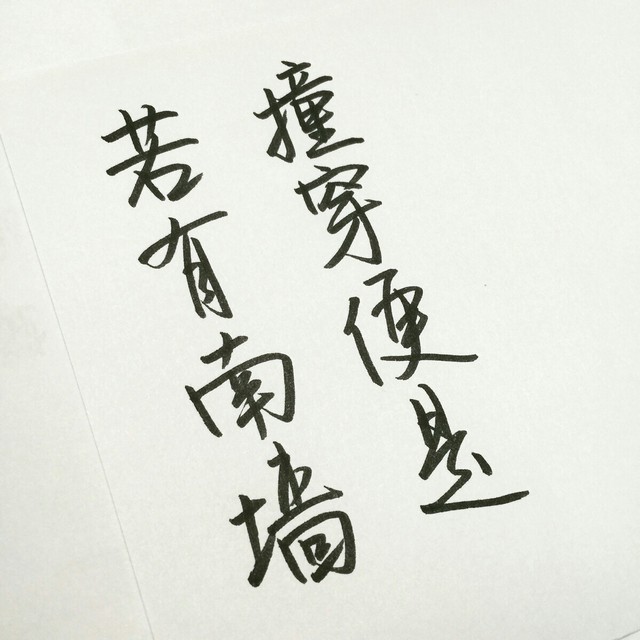 若有南墙
撞穿便是